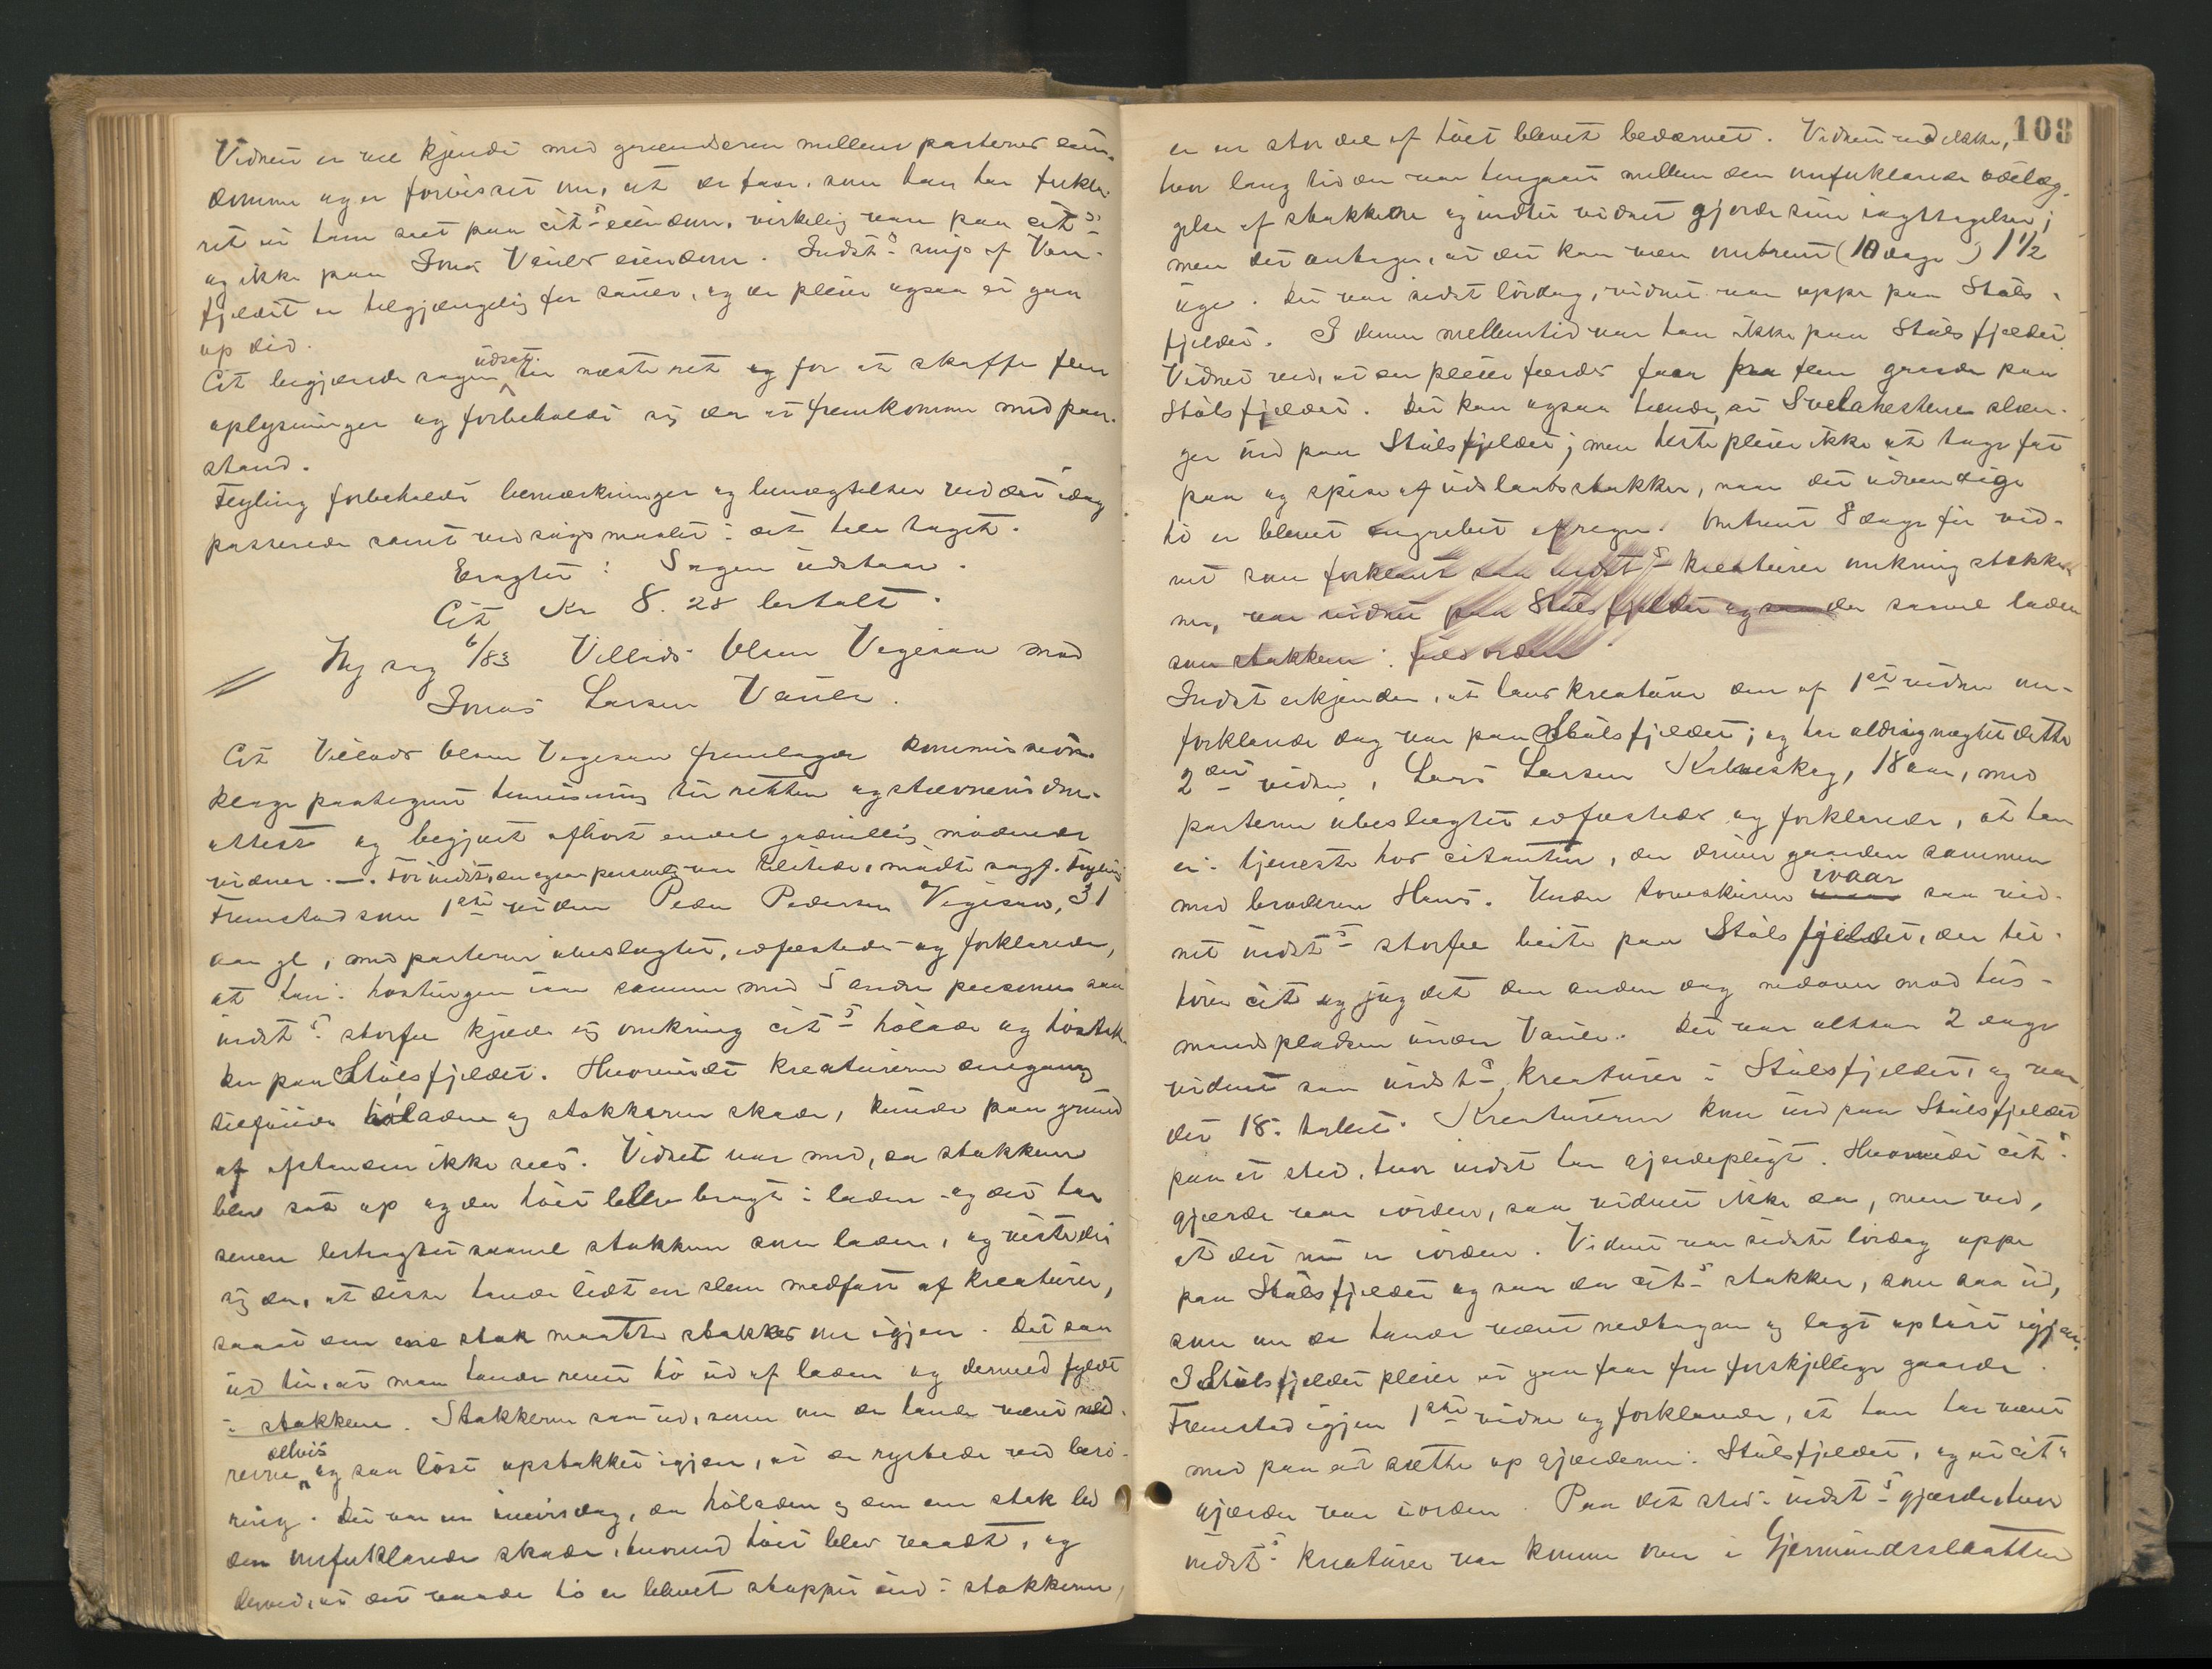 Vidnet er vel kjendt med grændserne mellem parternes eien-
domme og er forvisset om, at de faar, som han har forkla-
ret at have seet paa citˢ eiendom, virkelig var paa citˢ
og ikke paa Jonas Vaules eiendom. Indstˢ snip af Van-
fjeldet er tilgjængelig for sauer, og de pleier ogsaa at gaa
op did.
Cit begjærede sagen udsat til næste ret og for at skaffe flere
oplysninger og forbeholdt sig da at fremkomme med paa-
stand.
Feyling forbeholdt bemærkninger og benægtelser ved det idag
passerede samt ved søgsmaalet i det hele taget.
Eragtet: Sagen udstaar.
Cit Kr 8.28 betalt.
Ny sag 6/83 Villads Olsen Vegesan mod
Jonas Larsen Vaule.
Cit Villads Olsen Vegesan fremlagde kommissions
klage paategnet henvisning til retten og stævnevidne-
attest og begjært afhørt endel godvillig mødende
vidner. —. For indst, der ogsaa personlig var tilstede, mødte sagf. Feyling
Fremstod som 1ste vidne Peder Pedersen Vegesan, 31
aar gl, med parterne ubeslægtet, edfæstedes og forklarede,
at han i høst engang sammen med 5 andre personer saa
indstˢ storfæ kjæde sig omkring citˢ hølade og høstak-
ker paa Stølsfjeldet. Hvorvidt kreaturerne dengang
tilføiede høladen og stakkerne skade, kunde paa grund
af afstanden ikke sees. Vidnet var med, da stakkerne
blev sat op og da høiet blev bragt i laden og det har
senere betragtet saavel stakkene som laden, og viste det
sig da, at disse havde lidt en slem medfart af kreaturer,
saaat den ene stak maatte stakkes om igjen. Det saa
ud til, at man havde revet hø ud af laden og dermed fyldt
i stakkene. Stakkerne saa ud, som om de havde været ned-
revne delvis og saa løst opstakket igjen, at de rystede ved berø-
ring. Det var en uveirsdag, da høladen og den ene stak led
den omforklarede skade, hvorved høiet blev vaadt, og
derved, at det vaade hø er blevet stoppet ind i stakkerne,
108
er en stor del af høiet blevet bedærvet. Vidnet ved ikke,
hvor lang tid der var hengaaet mellem den omforklarede ødelæg-
gelse af stakkene og indtil vidnet gjorde sine iagttagelser;
men det antager, at det kan være omtrent (10 dage) 1½
uge. Det var sidst lördag, vidnet var oppe paa Støls-
fjeldet. I denne mellemtid var han ikke paa Stølsfjeldet.
Vidnet ved, at der pleier færdes faar fra flere gaarde paa
Stølsfjeldet. Det kan ogsaa hænde, at Svelahestene slæn-
ger ind paa Stølsfjeldet; men heste pleier ikke at tage fat
paa og spise af udslaatsstakker, naar det udvendige
hø er blevet angrebet af regn. Omtrent 8 dage før vid-
net som forklaret saa indstˢ kreaturer omkring stakker-
ne, var vidnet paa Stølsfjeldet og da saavel laden
som stakkene i fuld orden.
Indst erkjender, at hans kreaturer den af 1ste vidne om-
forklarede dag var paa Stølsfjeldet; og har aldrig nægtet dette
2det vidne, Lars Larsen Kalveskag, 18 aar, med
parterne ubeslægtet edfæstedes og forklarede, at han
er i tjeneste hos citanten, der driver gaarden sammen
med broderen Hans. Under toveskuren ivaar saa vid-
net indstˢ storfæ beite paa Stølsfjeldet, der til-
hører cit og jog det den anden dag nedover mod hus-
mandspladsen under Vaule. Det var altsaa 2 dage
vidnet saa indstˢ kreaturer i Stølsfjeldet, og var
der 18 i tallet. Kreaturerne kom ind paa Stølsfjeldet
paa et sted, hvor indst har gjerdepligt. Hvorvidt citˢ
gjærde var iorden, saa vidnet ikke da, men ved,
at det nu er iorden. Vidnet var sidste lördag oppe
paa Stølsfjeldet og saa da citˢ stakker, som saa ud,
som om de havde været nedtagne og lagt opløst igjen.
I Stølsfjeldet pleier at gaa faar fra forskjellige gaarde.
Fremstod igjen 1ste vidne og forklarede, at han har været
med paa at sætte op gjærderne i Stølsfjeldet, og at citˢ
gjærder var iorden. Paa det sted i indstˢ gjærde, hvor
indstˢ kreaturer var komne over i Gjermundsslaatten